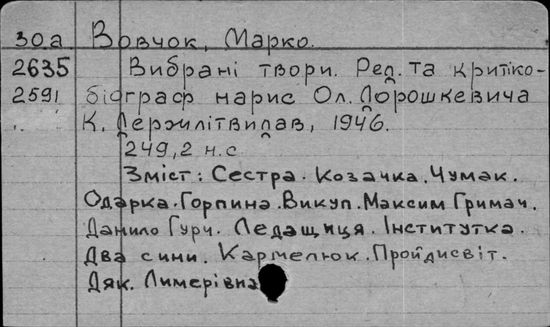 30а Вовчок, Марко.
2635 Вибрані твори. Ред. та критіко-
2591 біограф нарис Ол. Дорошкевича
К. Держлітвидав, 1946.
249, 2 н.с
Зміст: Сестра. Козачка. Чумак.
Одарка. Горпина. Викуп. Максим Гримач.
Данило Гурч. Ледащиця. Інститутка.
Два сини. Кармелюк. Пройдисвіт.
Дяк. Лимерівна